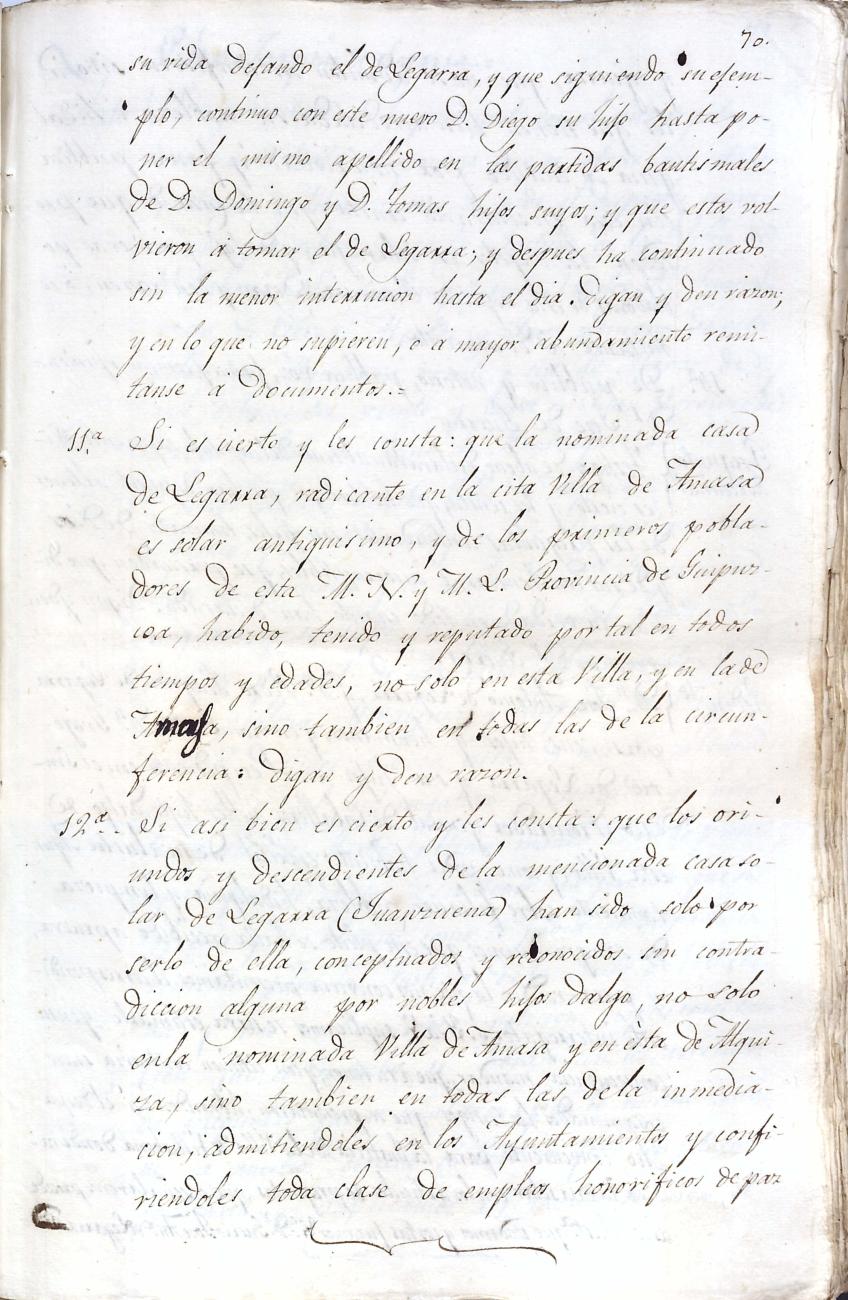 70.
su vida dejando el de Legarra, y que siguiendo su ejem-
plo, continuo con este nuevo D. Diego su hijo hasta po-
ner el mismo apellido en las partidas bautismales
de D. Domingo y D. Tomas hijos suyos; y que estos vol-
vieron á tomar el de Legarra; y despues ha continuado
sin la menor interrucion hasta el dia. digan y den razon;
y en lo que no supieren, ó á mayor abundamiento remi-
tanse á Documentos.=
11.ª Si es cierto y les consta: que la nominada casa
de Legarra, radicante en la cita Villa de Amasa
es solar antiquisimo, y de los primeros pobla-
dores de esta M. N. y M. L. Provincia de Guipuz-
coa, habido, tenido y reputado por tal en todos
tiempos y edades, no solo en esta Villa, y en la de
Amasa, sino tambien en todas las de la circun-
ferencia: digan y den razon.
12.ª Si asi bien es cierto y les consta: que los ori-
undos y descendientes de la mencionada casa so-
lar de Legarra (Juanzuena) han sido solo por
serlo de ella, conceptuados y reconocidos sin contra-
diccion alguna por nobles hijos dalgo, no solo
en la nominada Villa de Amasa y en ésta de Alqui-
za, sino tambien en todas las de la inmedia-
cion, admitiendeles en los Ayuntamientos y confi-
riendoles toda clase de empleos honorificos de paz